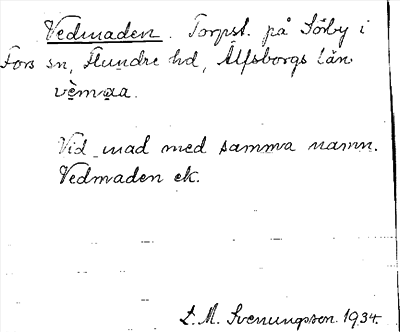 Vedmaden. Torpst. på Sörby i
Fors sn, Flundre hd, Älfsborgs län
vèmaa.
Vid mad med samma namn.
Vedmaden ek.
L. M. Svenungsson. 1934.